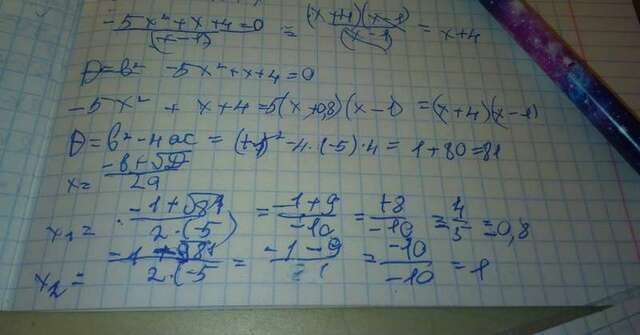 -5x²+x+4=0/(x-1) = (x+4)(x-1)/(x-1) = x+4
D=b² -5x²+x+4=0
-5x² + x+4=5(x+0,8)(x-1) =(x+4)(x-1)
D=b²-4ac = (+1)²-4·(-5)·4= 1+80=81
x= -b+√D/2a
x₁= -1+√81/2·(-5) = -1+9/-10 = +8/-10 = 4/5 = 0,8
x₂= -1+√81/2·(-5 = -1-9 = -10/-10 = 1